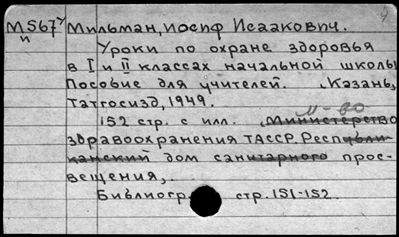 М567у Мильман, Иосиф Исаакович.
и
Уроки по охране здоровья
в I и II классах начальной школы
Пособие для учителей. Казань,
Татгосизд, 1949.
152 стр. с илл. Министерство
здравоохранения ТАССР. Республи-
канский дом санитарного прос-
вещения,.
Библиогр. стр. 151-152.